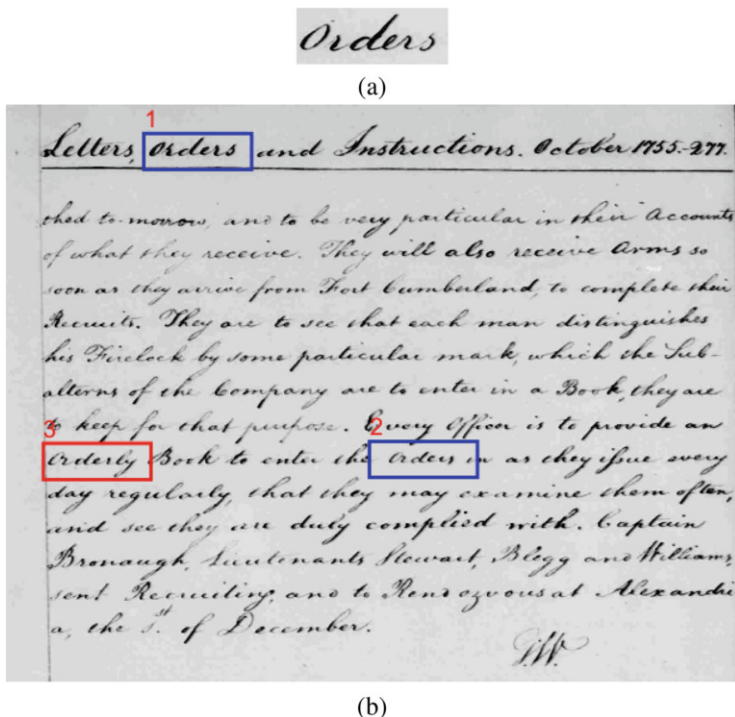 Orders
(a)
1
Letters, Orders and Instructions. October 1755.-277.
thed to-morrow, and to be very particular in their Accounts
of what they receive. They will also receive Arms so
soon as they arrive from Fort Cumberland, to complete their
Recruits. They are to see that each man distinguishes
his Firelock by some particular mark, which the Sub-
alterns of the Company are to enter in a Book, they are
to keep for that purpose. Every Officer is to provide an
3 2
Orderly Book to enter the Orders in as they issue every
day regularly, that they may examine them often,
and see they are duly complied with. Captain
Bronaugh, Lieutenants Stewart, Blegg and Williams,
sent Recruiting, and to Rendezvous at Alexandri
a, the 1st. of December.
G.W.
(b)